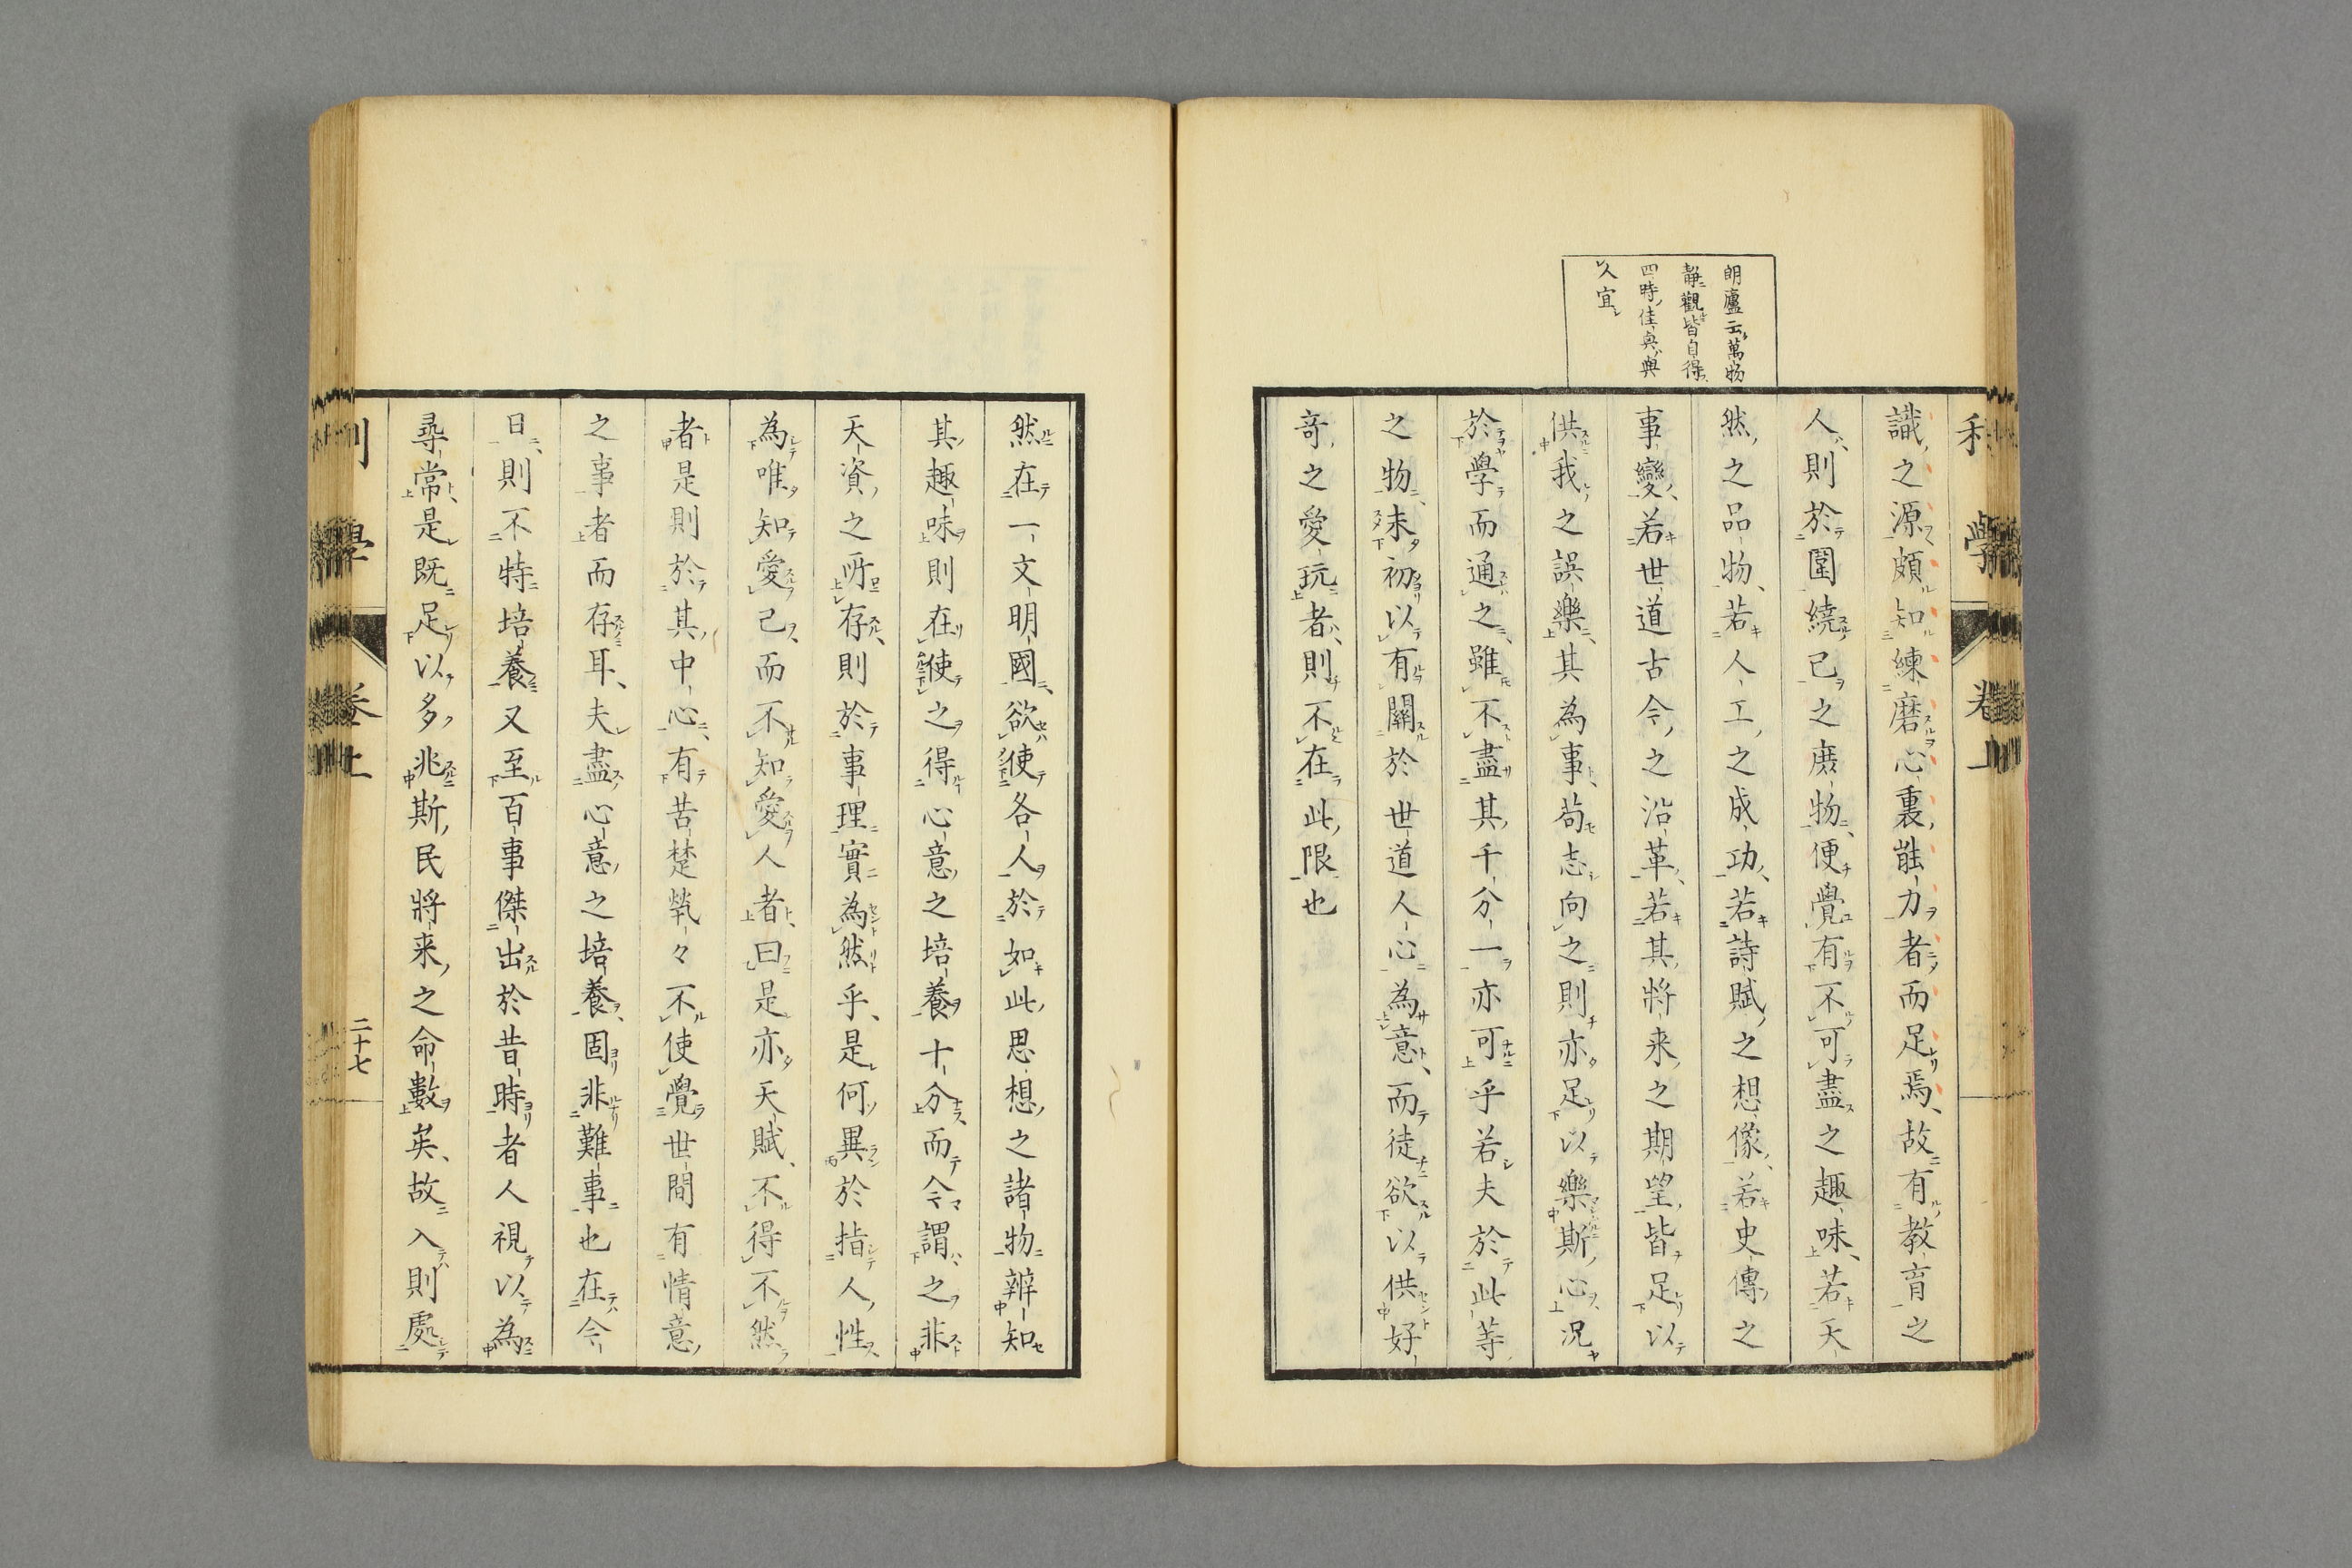 朗廬云萬物
靜觀皆自得
四時佳興與
人宜
識之源頗知練磨心裏能力者而足焉故有教育之
人則於圍繞己之庶物便覺有不可盡之趣味若天
然之品物若人工之成功若詩賦之想像若史傳之
事變若世道古今之沿革若其將来之期望皆足以
供我之誤樂其為事苟志向之則亦足以樂斯心況
於學而通之雖不盡其千分一亦可乎若夫於此等
之物未初以有關於世道人心為意而徒欲以供好
奇之愛玩者則不在此限也
利學
卷上
然在一文明國欲使各人於如此思想之諸物辨知
其趣味則在使之得心意之培養十分而今謂之非
天資之所存則於事理實為然乎是何異於指人性
為唯知愛己而不知愛人者曰是亦天賦不得不然
者是則於其中心有苦楚煢々不使覺世間有情意
之事者而存耳夫盡心意之培養固非難事也在今
日則不特培養又至百事傑出於昔時者人視以為
尋常是既足以多兆斯民將来之命數矣故入則處
利學
卷上
二十七